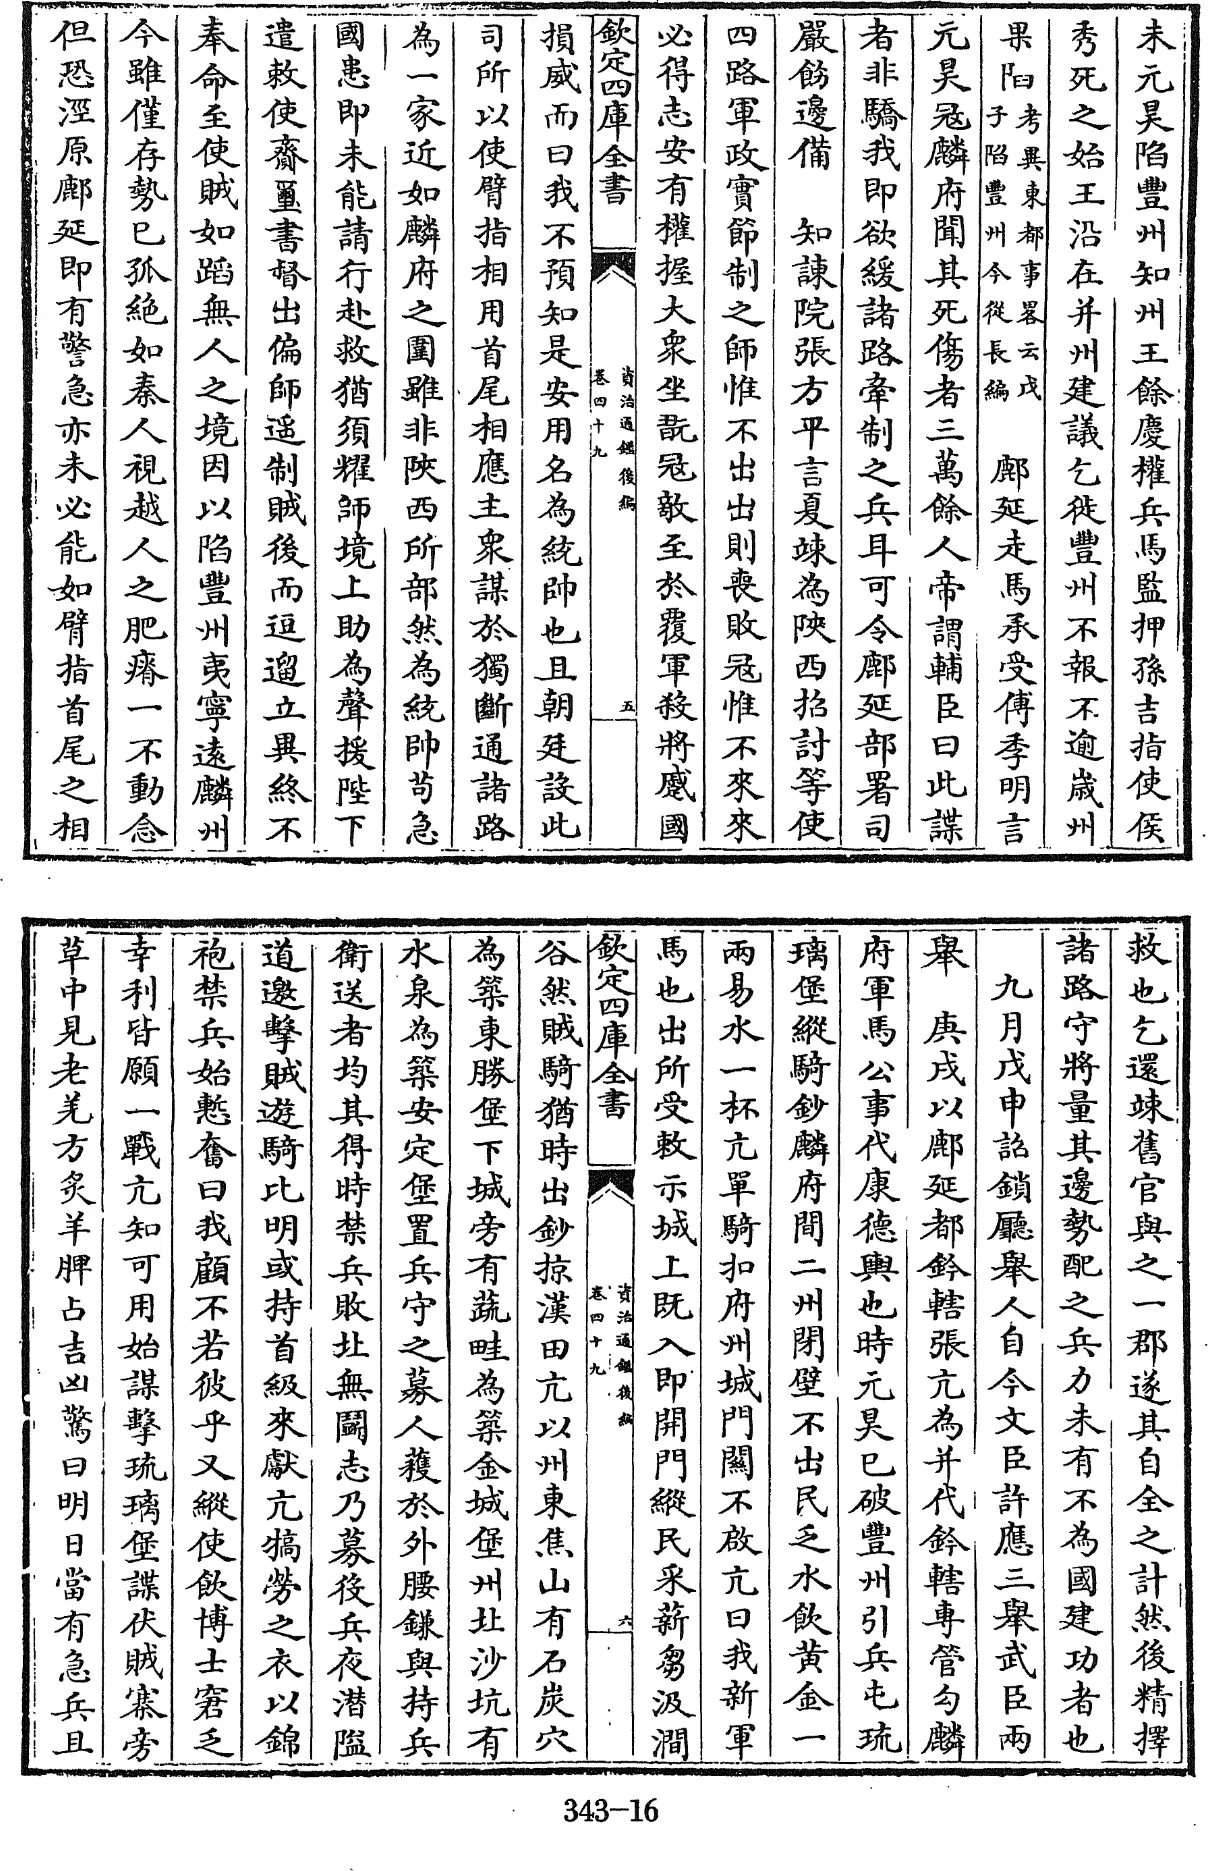 未元昊陷豐州知州王餘慶權兵馬監押孫吉指使侯
秀死之始王沿在并州建議乞徙豐州不報不逾歲州
果陷考異東都事畧云戊子陷豐州今從長編　鄜延走馬承受傅季明言
元昊冦麟府聞其死傷者三萬餘人帝謂輔臣曰此諜
者非驕我即欲緩諸路牽制之兵耳可令鄜延部署司
嚴飭邊備　知諫院張方平言夏竦為陜西招討等使
四路軍政實節制之師惟不出出則喪敗冦惟不來來
必得志安有權握大衆坐翫冦敵至於覆軍殺將蹙國
欽定四庫全書
資治通鑑後編
卷四十九
五
損威而曰我不預知是安用名為統帥也且朝廷設此
司所以使臂指相用首尾相應主衆謀於獨斷通諸路
為一家近如麟府之圍雖非陜西所部然為統帥茍急
國患即未能請行赴救猶須耀師境上助為聲援陛下
遣敕使齎璽書督出偏師遥制賊後而逗遛立異終不
奉命至使賊如蹈無人之境因以陷豐州夷寧逺麟州
今雖僅存勢已孤絶如秦人視越人之肥瘠一不動念
但恐涇原鄜延即有警急亦未必能如臂指首尾之相
救也乞還竦舊官與之一郡遂其自全之計然後精擇
諸路守將量其邊勢配之兵力未有不為國建功者也
九月戊申詔鎖廳舉人自今文臣許應三舉武臣兩
舉　庚戌以鄜延都鈐轄張亢為并代鈐轄専管勾麟
府軍馬公事代康德輿也時元昊已破豐州引兵屯琉
璃堡縱騎鈔麟府間二州閉壁不出民乏水飲黄金一
兩易水一杯亢單騎扣府州城門關不啟亢曰我新軍
馬也出所受敕示城上既入即開門縱民采薪芻汲澗
欽定四庫全書
資治通鑑後編
卷四十九
六
谷然賊騎猶時出鈔掠漢田亢以州東焦山有石炭穴
為築東勝堡下城旁有蔬畦為築金城堡州北沙坑有
水泉為築安定堡置兵守之募人穫於外腰鎌與持兵
衛送者均其得時禁兵敗北無鬭志乃募役兵夜潜隘
道邀擊賊遊騎比明或持首級來獻亢犒勞之衣以錦
袍禁兵始慙奮曰我顧不若彼乎又縱使飲博士窘乏
幸利皆願一戰亢知可用始謀擊琉璃堡諜伏賊寨旁
草中見老羌方炙羊脾占吉凶驚曰明日當有急兵且
343-16